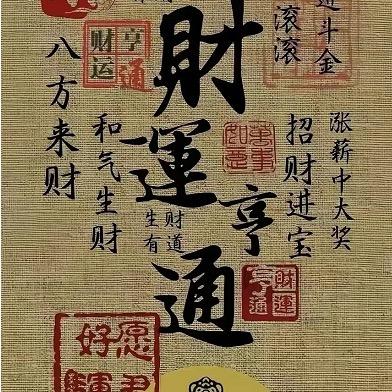 財運亨通
进斗金
滚滚
涨薪中大奖
招财进宝
生财有道
和气生财
八方来财
财运亨通
萬事如意
財運亨通
愿
好運